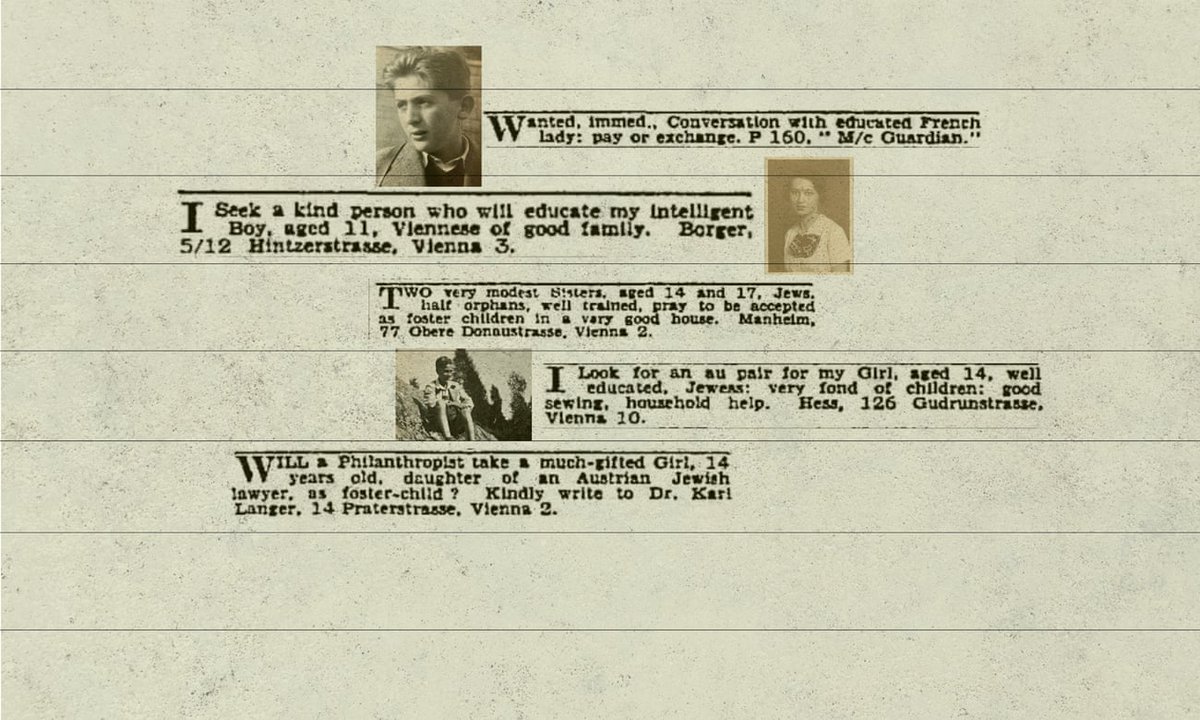 Wanted, immed., Conversation with educated French
lady: pay or exchange. P 160, " M/c Guardian."
I Seek a kind person who will educate my intelligent
Boy, aged 11, Viennese of good family. Borger,
5/12 Hintzerstrasse, Vienna 3.
TWO very modest Sisters, aged 14 and 17, Jews,
half orphans, well trained, pray to be accepted
as foster children in a very good house. Manheim,
77 Obere Donaustrasse, Vienna 2.
I Look for an au pair for my Girl, aged 14, well
educated, Jewess: very fond of children: good
sewing, household help. Hess, 126 Gudrunstrasse,
Vienna 10.
WILL a Philanthropist take a much-gifted Girl, 14
years old, daughter of an Austrian Jewish
lawyer, as foster-child ? Kindly write to Dr. Karl
Langer, 14 Praterstrasse, Vienna 2.